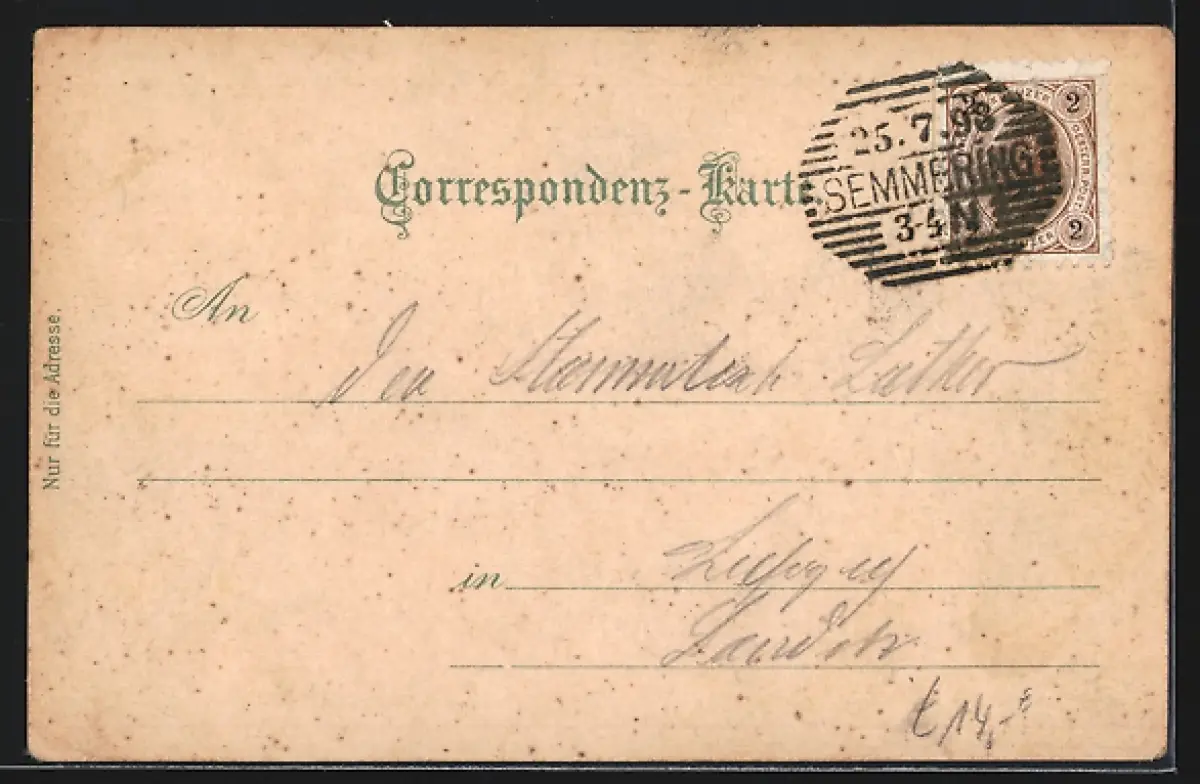 Correspondenz-Karte.
25.7.98
SEMMERING
3-4 N
2
2
An
Den Stammtisch Luther
in
Nur für die Adresse.
14,-